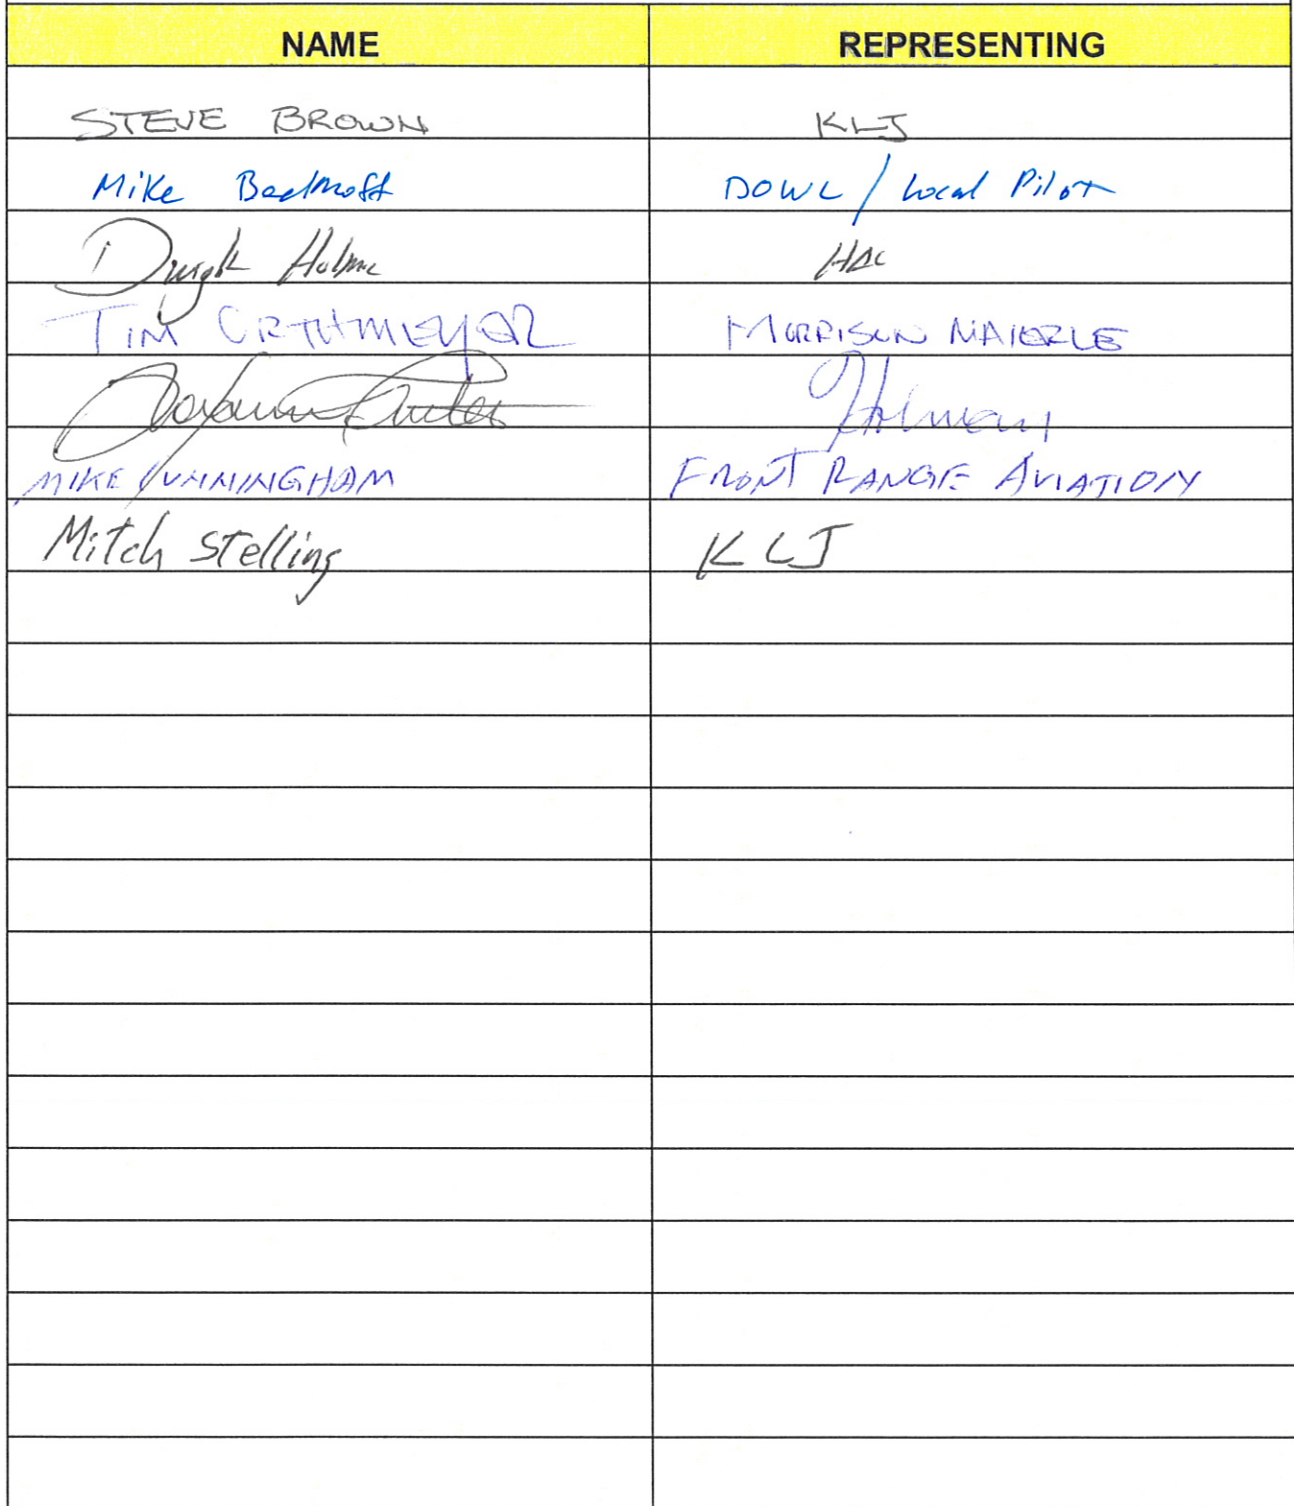 NAME REPRESENTING
STEVE BROWN KLJ
Mike DOWL / Local Pilot
Dwight Holme HAC
TIM ORTHMEYER MORRISON MAIERLE
MIKE CUNNINGHAM FRONT RANGE AVIATION
Mitch Stelling KLJ